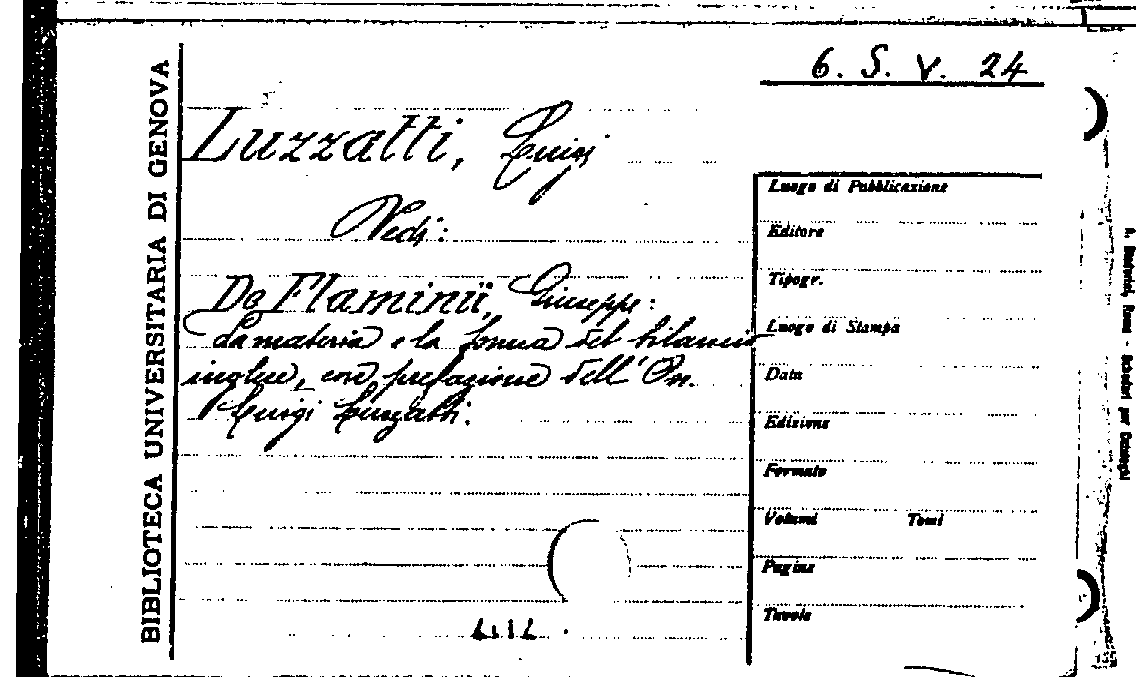 BIBLIOTECA UNIVERSITARIA DI GENOVA
6. S. V. 24
Luzzatti, Luigi
Vedi:
De Flaminii, Giuseppe:
La materia e la forma del bilancio
inglese, con prefazione dell'On.
Luigi Luzzatti.
Luogo di Pubblicazione
Editore
Tipogr.
Luogo di Stampa
Data
Edizione
Formato
Volumi Tomi
Pagine
Tavole
Roma - Schedari per Cataloghi